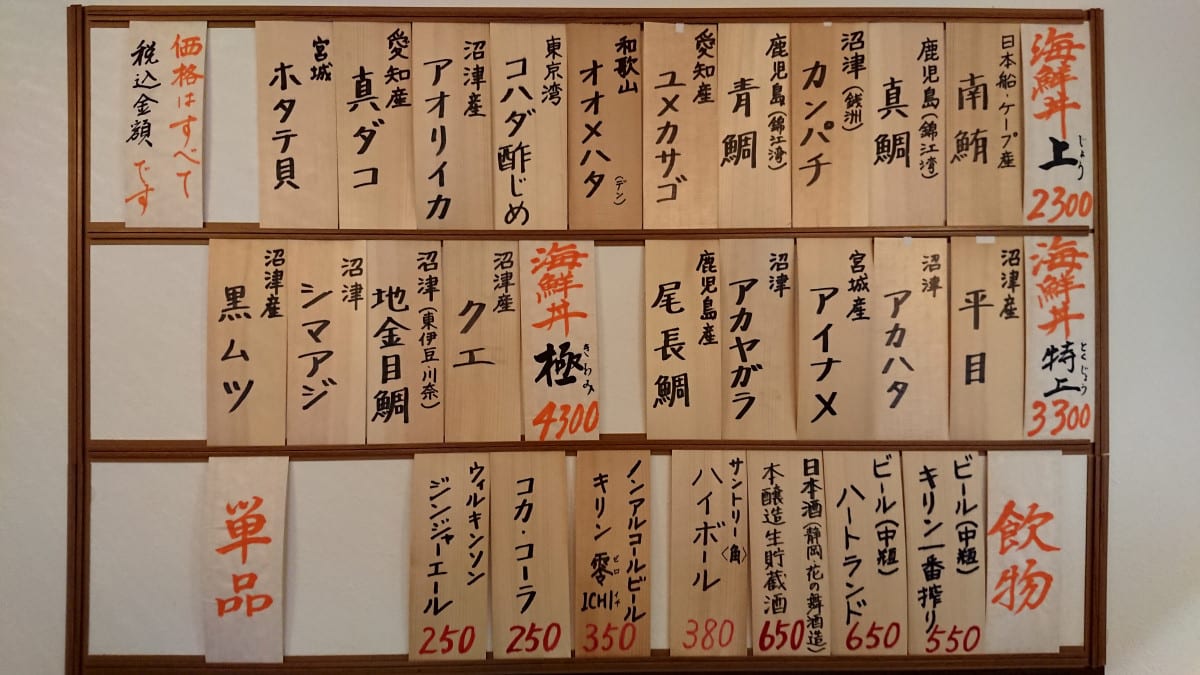 海鮮丼 上 じょう
2300
日本船・ケープ産
南鮪
鹿児島(錦江湾)
真鯛
沼津(銭洲)
カンパチ
鹿児島(錦江湾)
青鯛
愛知産
ユメカサゴ
和歌山
オオメハタ(デン)
東京湾
コハダ酢じめ
沼津産
アオリイカ
愛知産
真ダコ
宮城
ホタテ貝
価格はすべて
税込金額です
海鮮丼 特上 とくじょう
3300
沼津産
平目
沼津
アカハタ
宮城産
アイナメ
沼津
アカヤガラ
鹿児島産
尾長鯛
海鮮丼 極 きわみ
4300
沼津産
クエ
沼津(東伊豆・川奈)
地金目鯛
沼津
シマアジ
沼津産
黒ムツ
飲物
ビール(中瓶)
キリン一番搾り
550
ビール(中瓶)
ハートランド
650
日本酒(静岡・花の舞酒造)
本醸造生貯蔵酒
650
サントリー〈角〉
ハイボール
380
ノンアルコールビール
キリン 零ICHI ゼロイチ
350
コカ・コーラ
250
ウィルキンソン
ジンジャーエール
250
単品